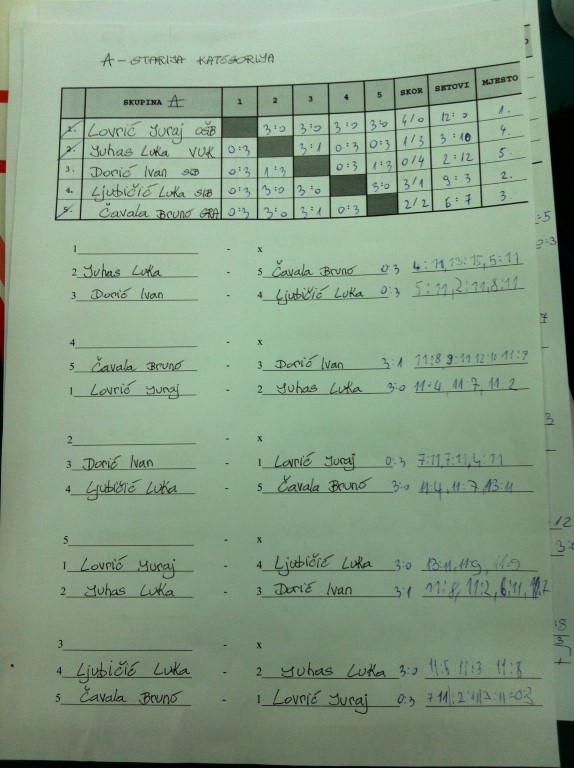 A - STARIJA KATEGORIJA
SKUPINA A 1 2 3 4 5 SKOR SETOVI MJESTO
1. Lovrić Juraj OŠB 3:0 3:0 3:0 3:0 4/0 12:0 1.
2. Juhas Luka VUK 0:3 3:1 0:3 0:3 1/3 3:10 4.
3. Dorić Ivan SLB 0:3 1:3 0:3 1:3 0/4 2:12 5.
4. Ljubičić Luka SLB 0:3 3:0 3:0 3:0 3/1 9:3 2.
5. Čavala Bruno GRA 0:3 3:0 3:1 0:3 2/2 6:7 3.
1 - x
2 Juhas Luka - 5 Čavala Bruno 0:3 4:11, 13:15, 5:11
3 Dorić Ivan - 4 Ljubičić Luka 0:3 5:11, 2:11, 8:11
4 - x
5 Čavala Bruno - 3 Dorić Ivan 3:1 11:8 9:11 12:10 11:7
1 Lovrić Juraj - 2 Juhas Luka 3:0 11:4, 11:7, 11:2
2 - x
3 Dorić Ivan - 1 Lovrić Juraj 0:3 7:11, 7:11, 4:11
4 Ljubičić Luka - 5 Čavala Bruno 3:0 11:4, 11:7, 13:11
5 - x
1 Lovrić Juraj - 4 Ljubičić Luka 3:0 13:11, 11:9, 11:9
2 Juhas Luka - 3 Dorić Ivan 3:1 11:8, 11:2, 6:11,
3 - x
4 Ljubičić Luka - 2 Juhas Luka 3:0 11:5 11:3 11:8
5 Čavala Bruno - 1 Lovrić Juraj 0:3